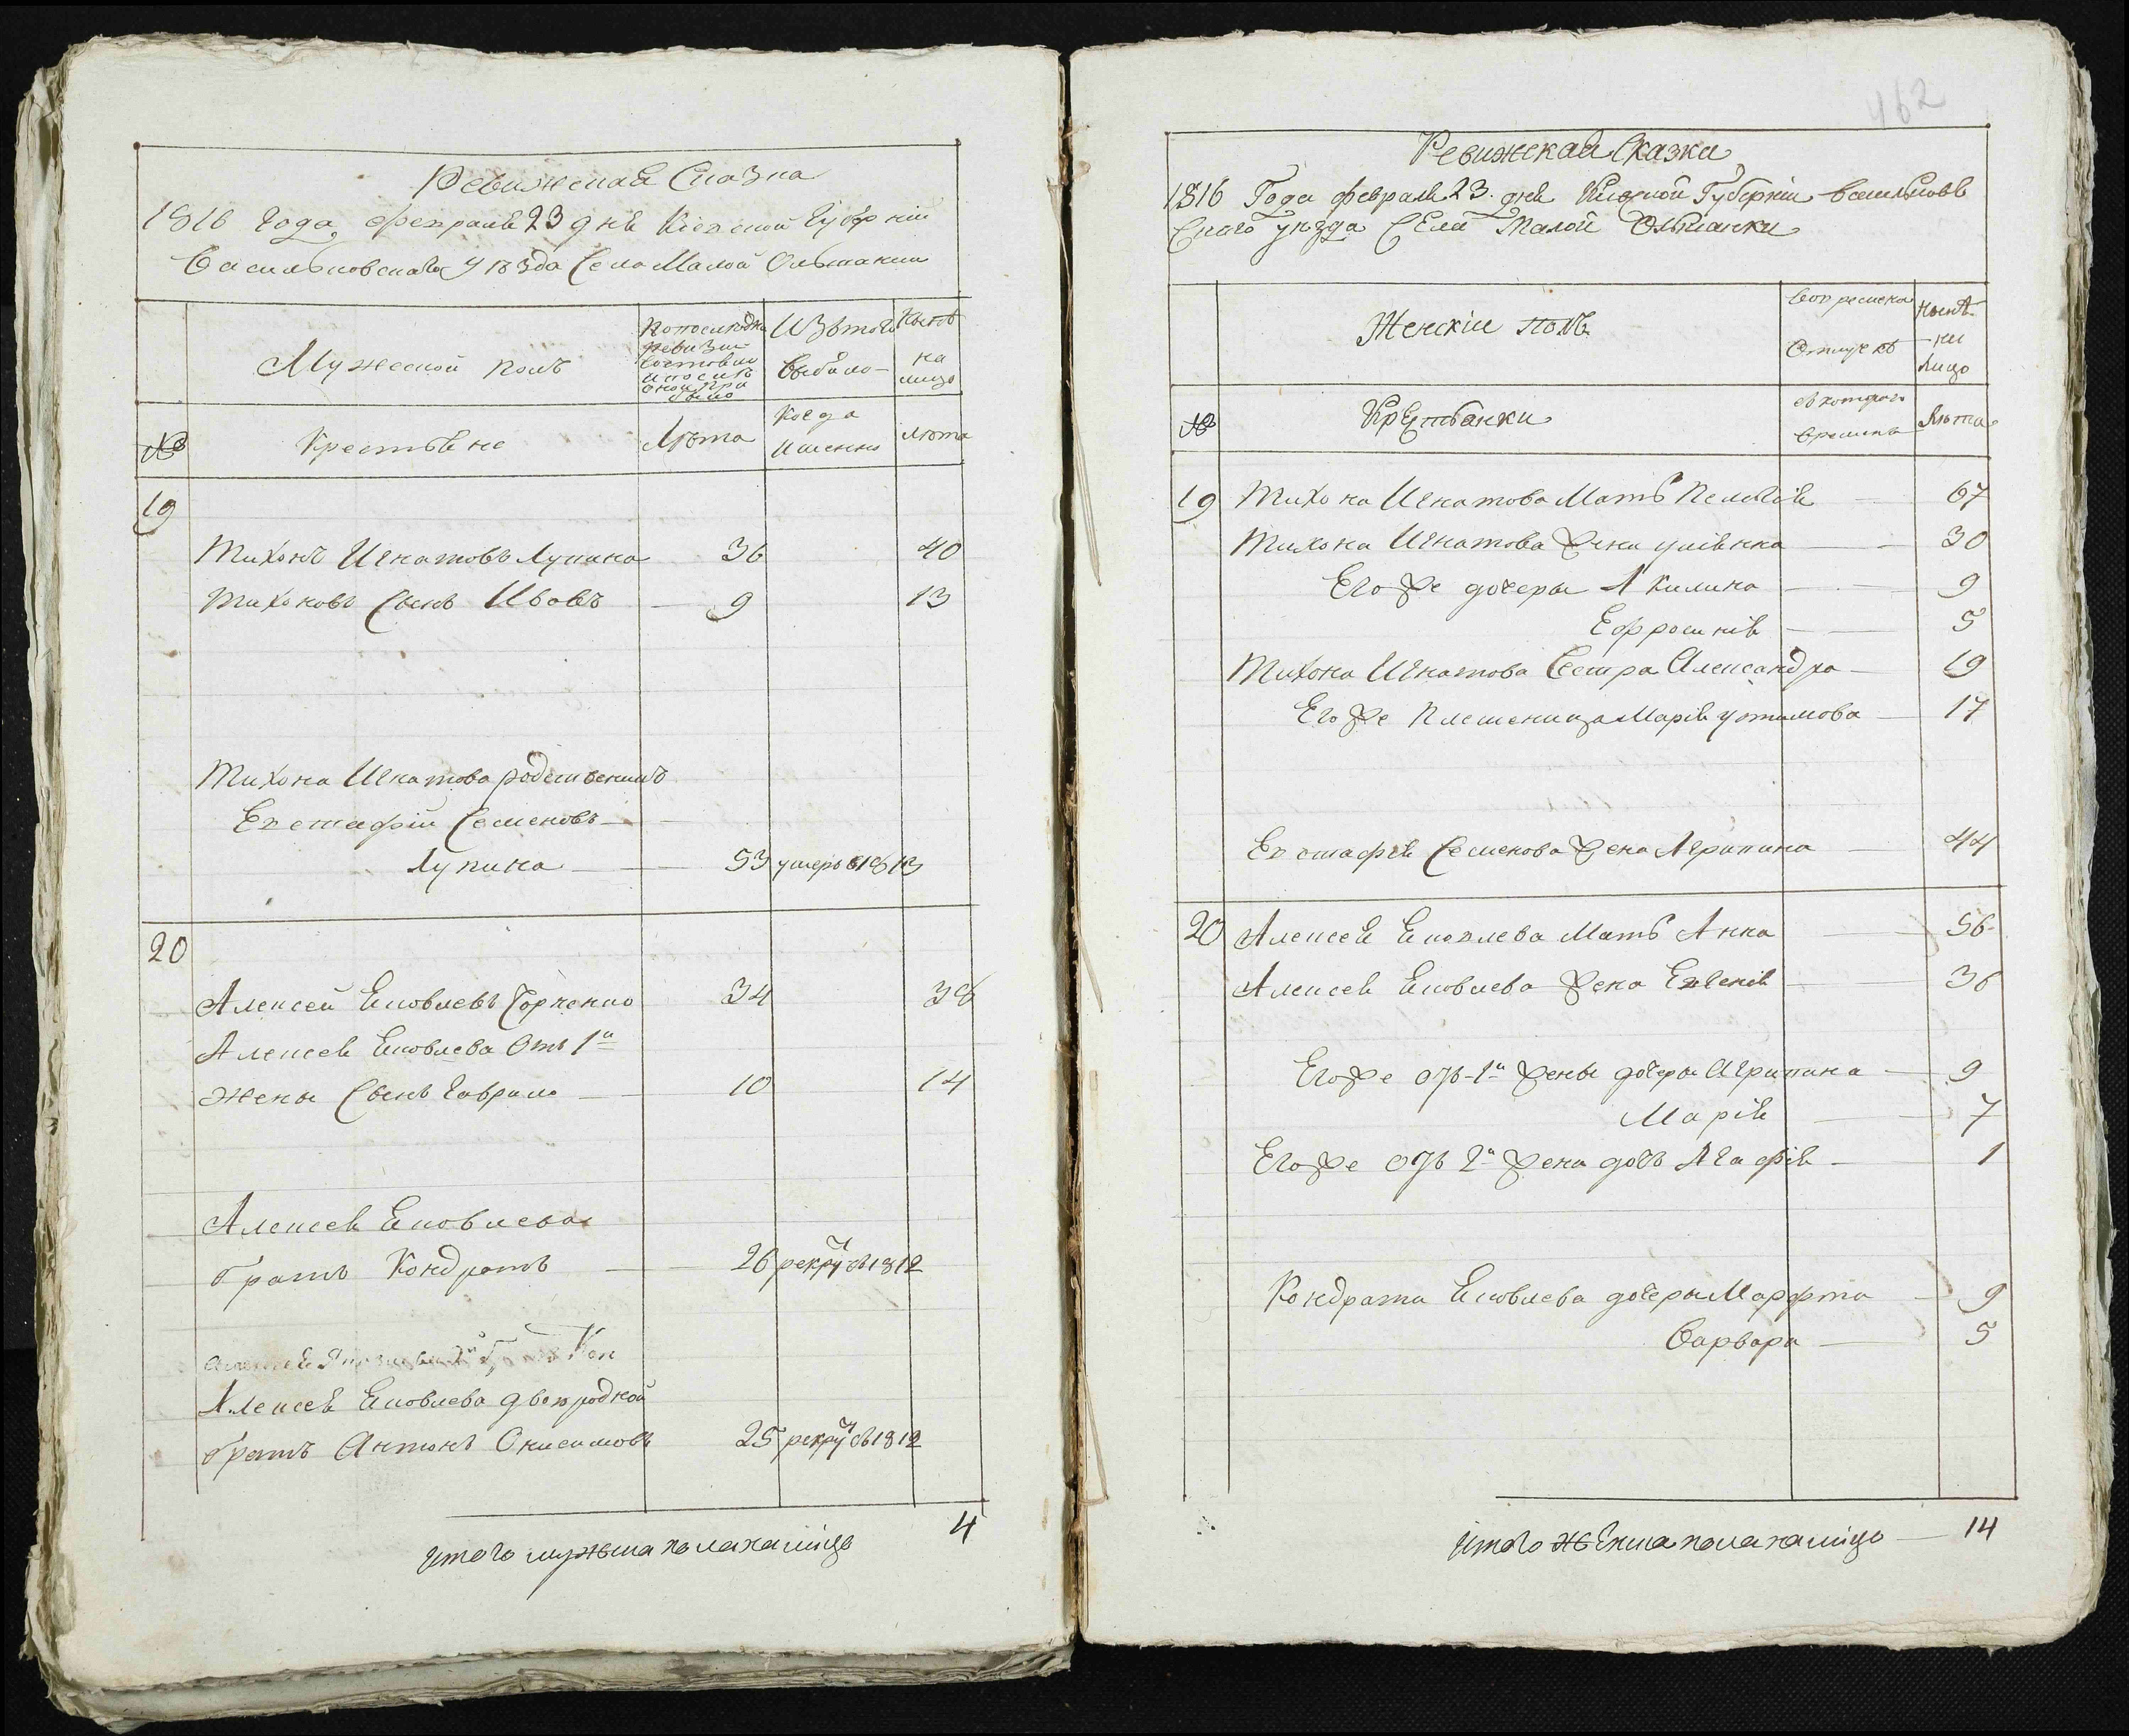 Ревижская Сказка
1816 Года Февраля 23 дня Киевской Губернии
Васильковскаго уезда Села Малой Ольшанки
Мужеской полъ
По последней ревизии состояло и после оной при было
Изъ того выбыло
Ныне на лицо
№
Крестьяне
Лета
Когда именно
Лета
19
Тихонъ Игнатовъ Лупина 36 40
Тихоновъ Сынъ Ивавъ 9 13
Тихона Игнатова родственикъ
Евстафiй Семеновъ
Лупина 53 умеръ 1813
20
Алексей Яковлевъ 34 38
Алексея Яковлева Отъ 1й
жены Сынъ Гаврило 10 14
Алексея Яковлева
братъ Кондратъ 26 рекрутъ 1812
Алексея Яковлева двоюродной
братъ Антонъ Онисимовъ 25 рекрутъ 1812
итого мужеска пола налицо 4
462
Ревижская Сказка
1816 Года февраля 23 дня Киевской Губернiи Васильковъ
Скаго уезда Села Малой Ольшанки
Женскiй полъ
Во временной Отлучке
Ныне на лицо
№
Крестьянки
съ котораго времени
Лета
19 Тихона Игнатова Мать Пелагiя 67
Тихона Игнатова жена улiянна 30
Его же дочеры Акилина 9
Ефросинiя 5
Тихона Игнатова Сестра Александра 19
Его же Племеница Марiя устимова 17
Евстафея Семенова жена Агрипина 44
20 Алексея Яковлева Мать Анна 56
Алексея Яковлева жена Евгенiя 36
Его же отъ 1й жены дочеры Агрипина 9
Марiя 7
Его же отъ 2й жена дочъ Агафiя 1
Кондрата Яковлева дочеры Марфта 9
Варвара 5
итого женска пола налицо 14